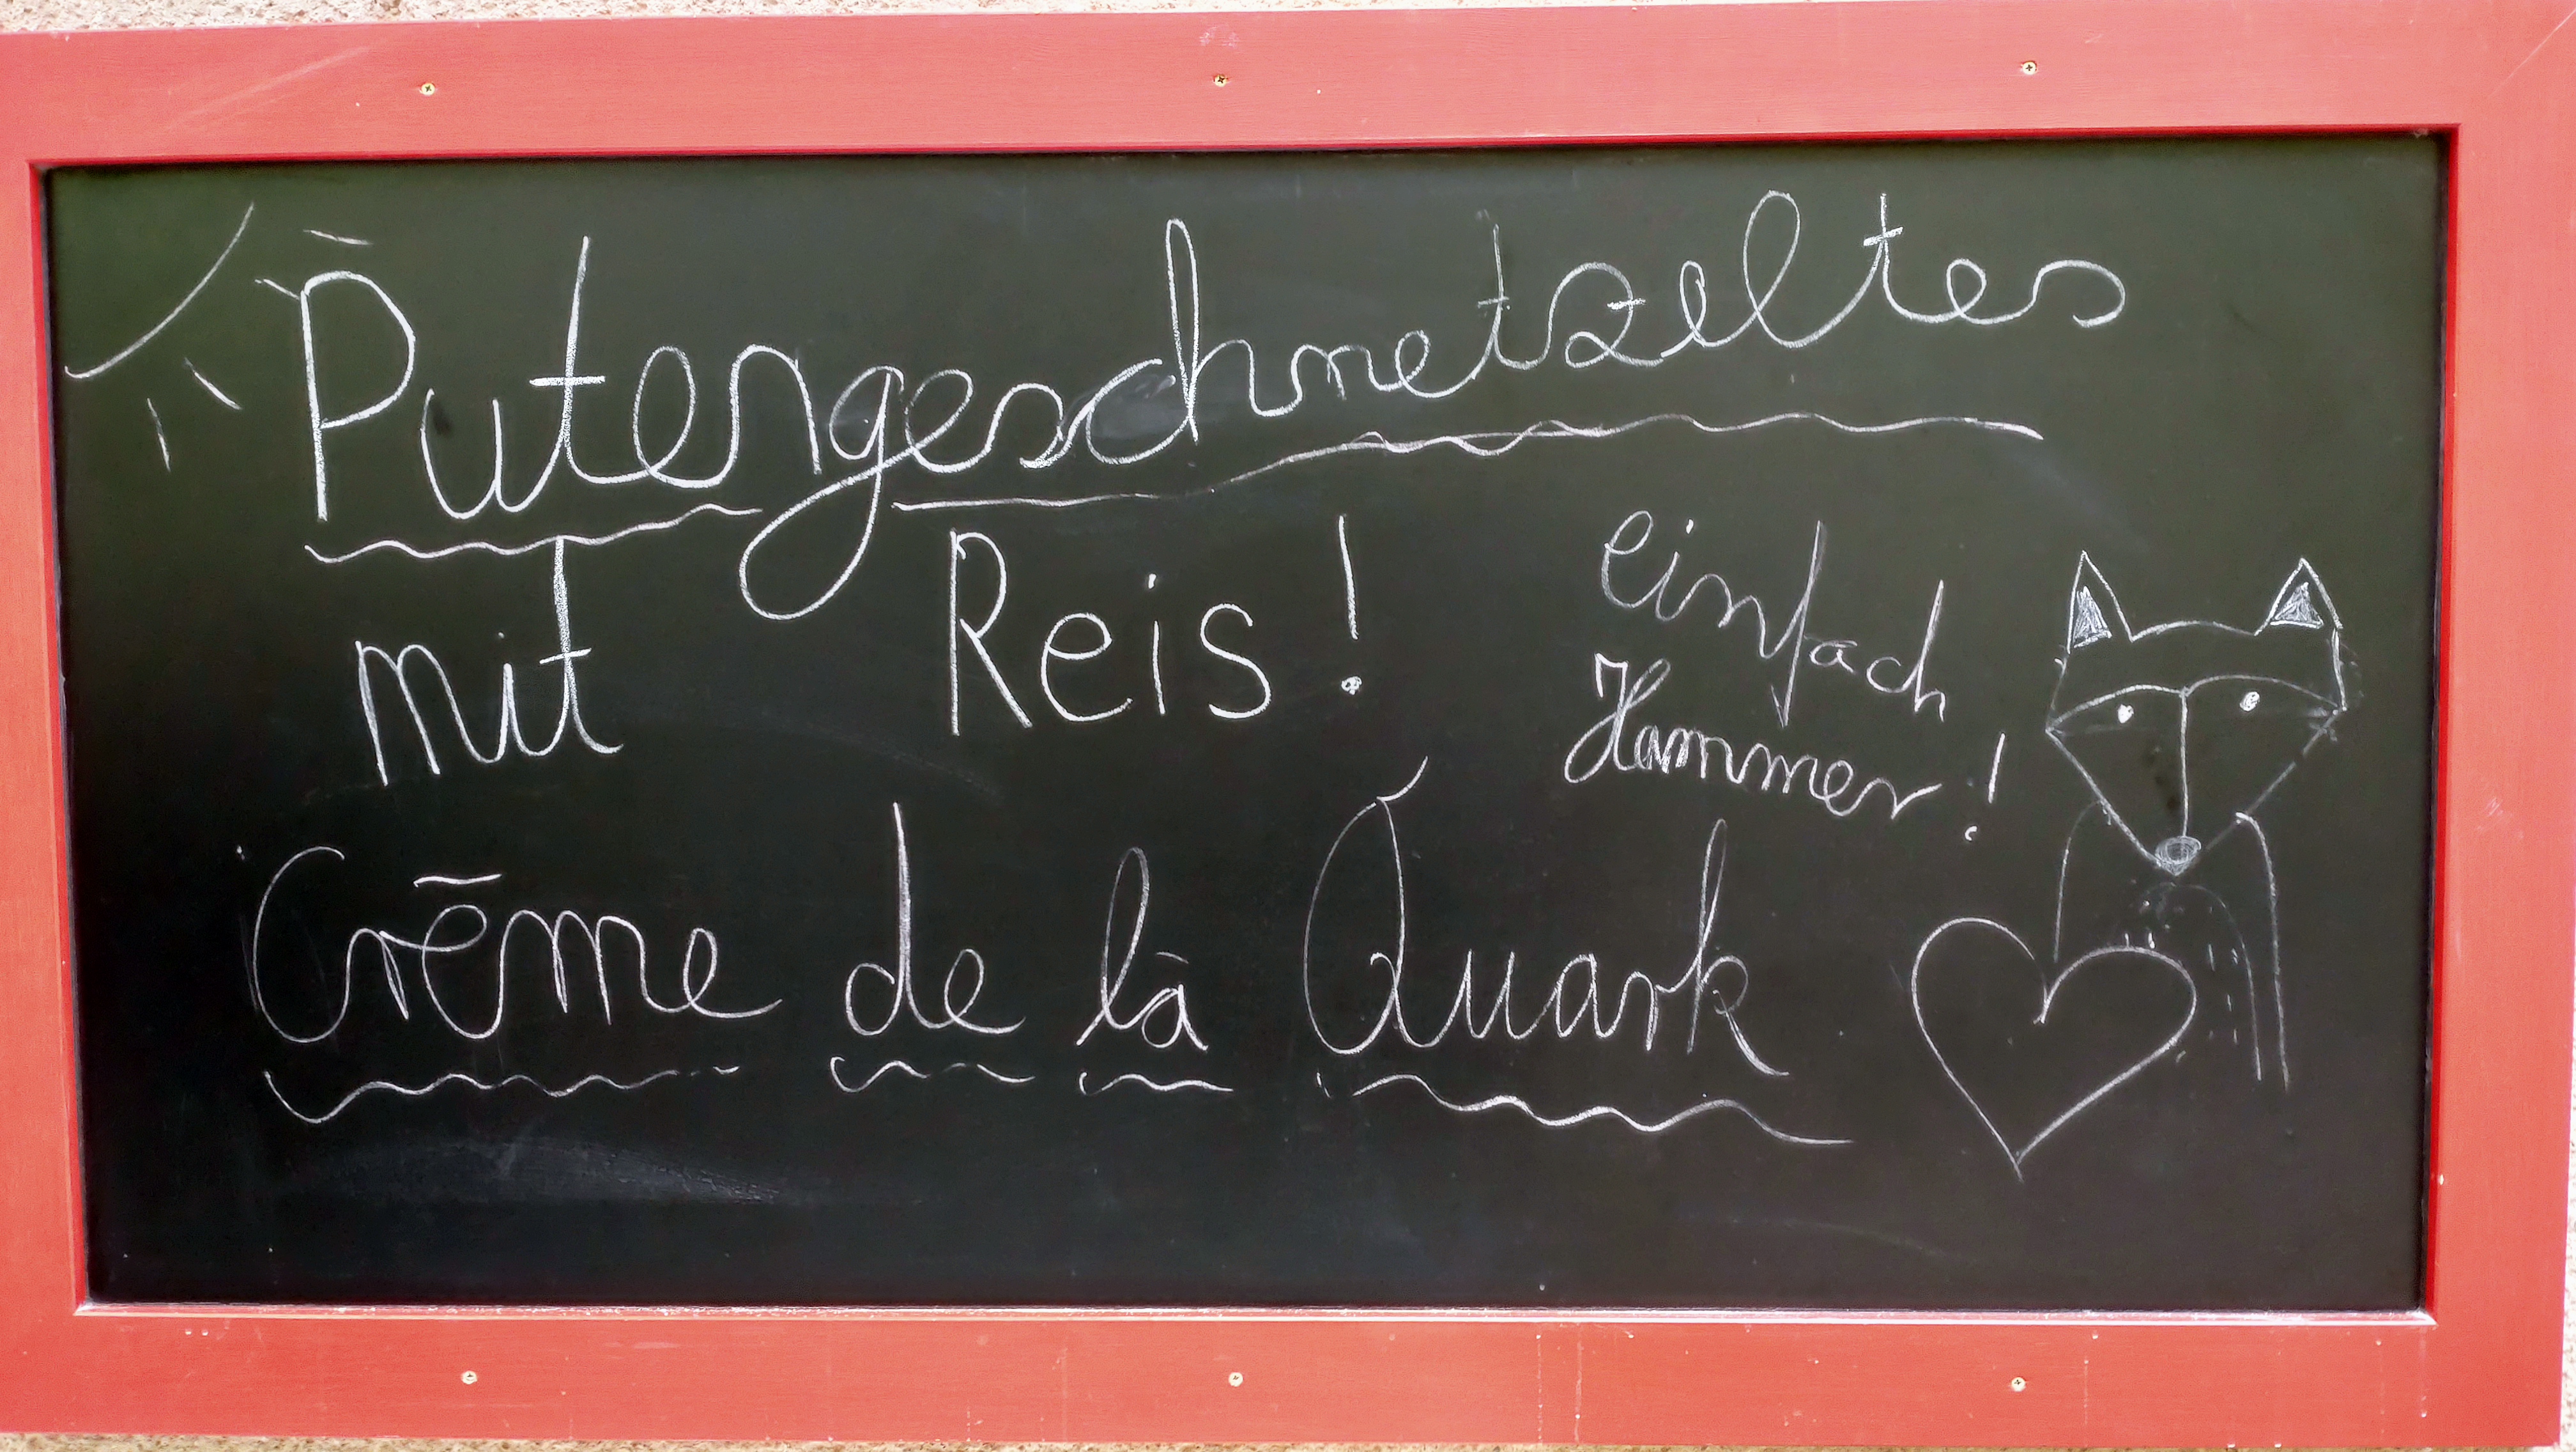 Putengeschnetzeltes
mit Reis!
einfach
Hammer!
Crēme de lā Quark